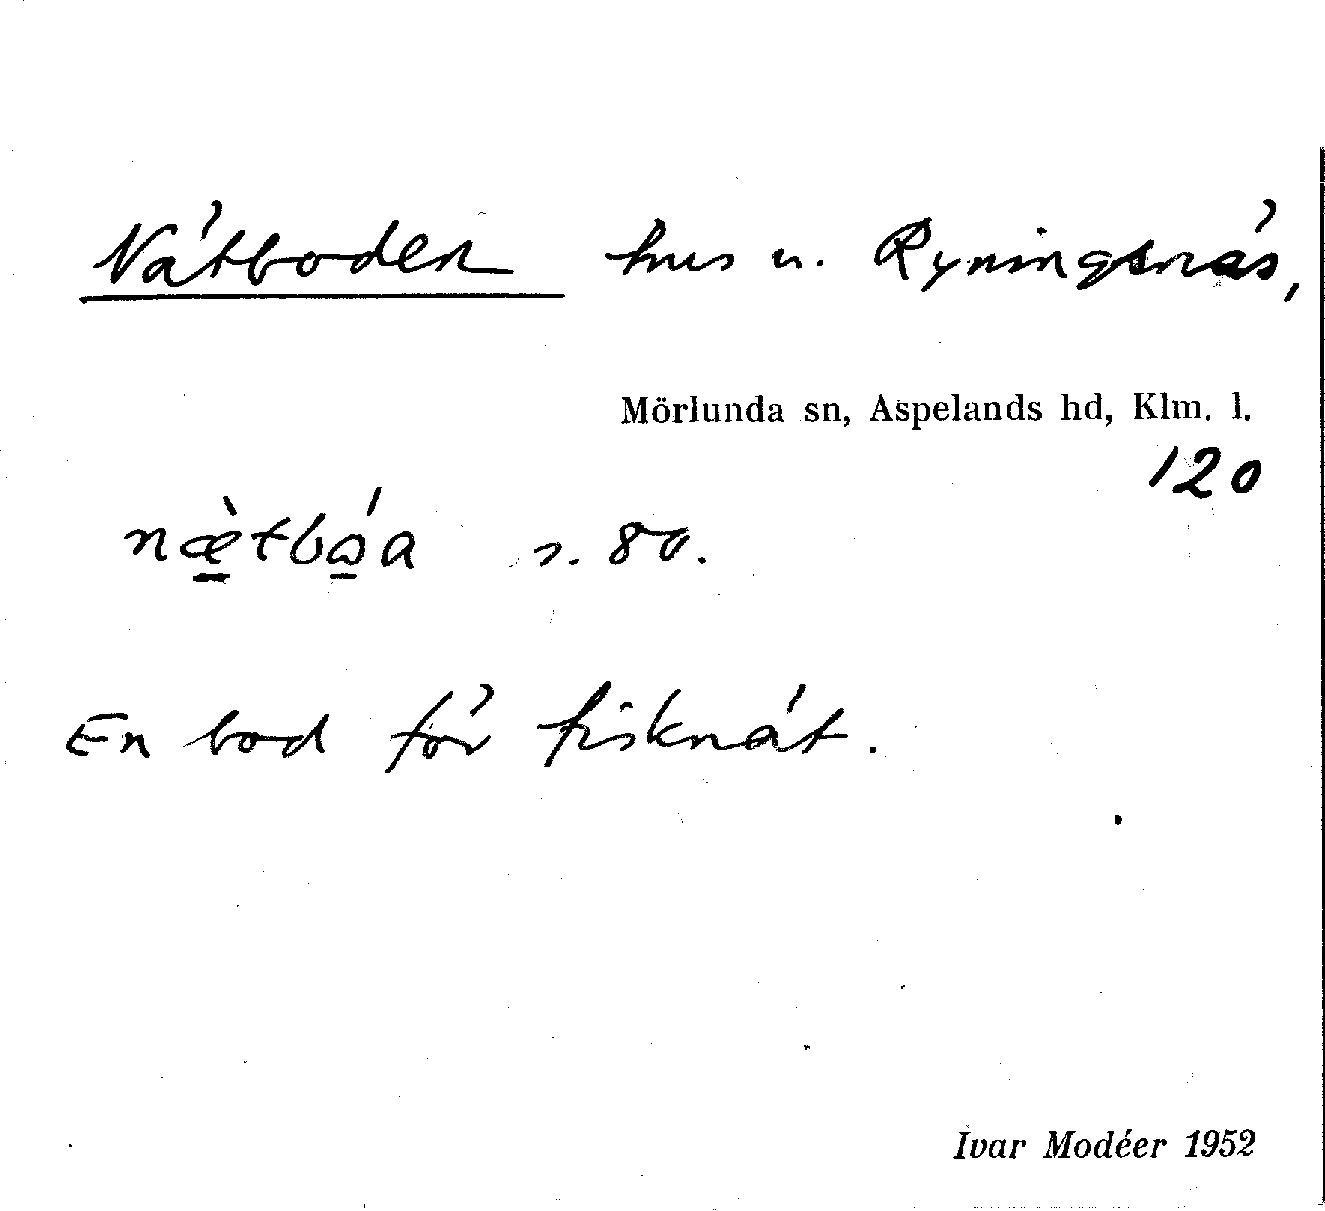 Nätboden hus u. Ryningsnäs,
Mörlunda sn, Aspelands hd, Klm. l.
120
næ̀tbɷ́a s. 80.
En bod för fisknät.
Ivar Modéer 1952